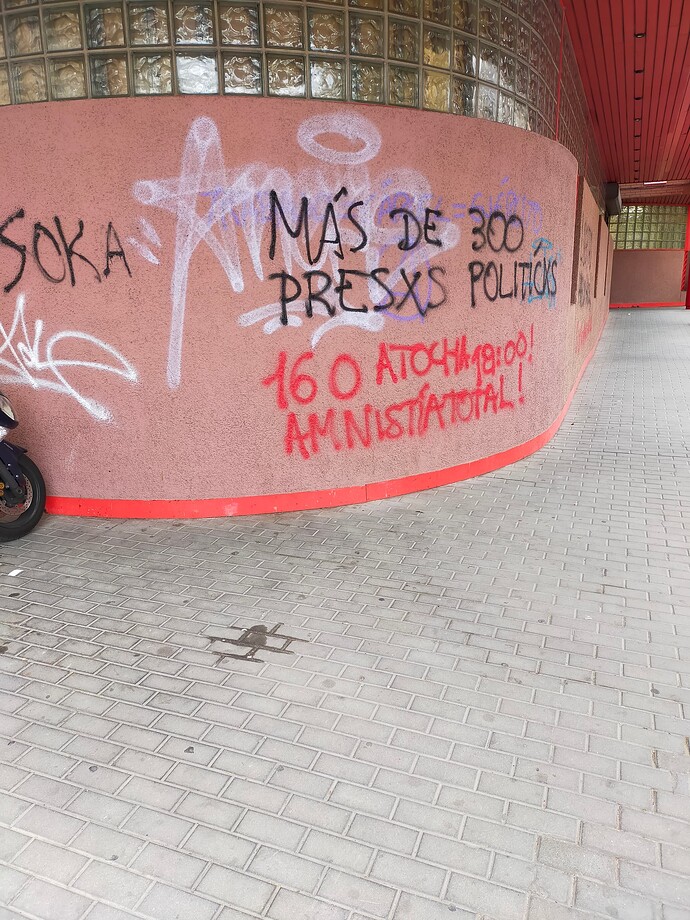 SOKA
MÁS DE 300
PRESXS POLÍTICXS
16 O ATOCHA 18:00!
AMNISTÍA TOTAL!